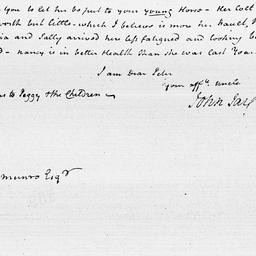 you to let her be put to your young Horse - Her Colt
worth but little - which I believe is more her fault,
and Sally arrived here less fatigued and looking
- Nancy is in better Health than she was last Year
I am Dear Peter
your aff.te uncle
John Jay
to Peggy & the Children
munro Esqr